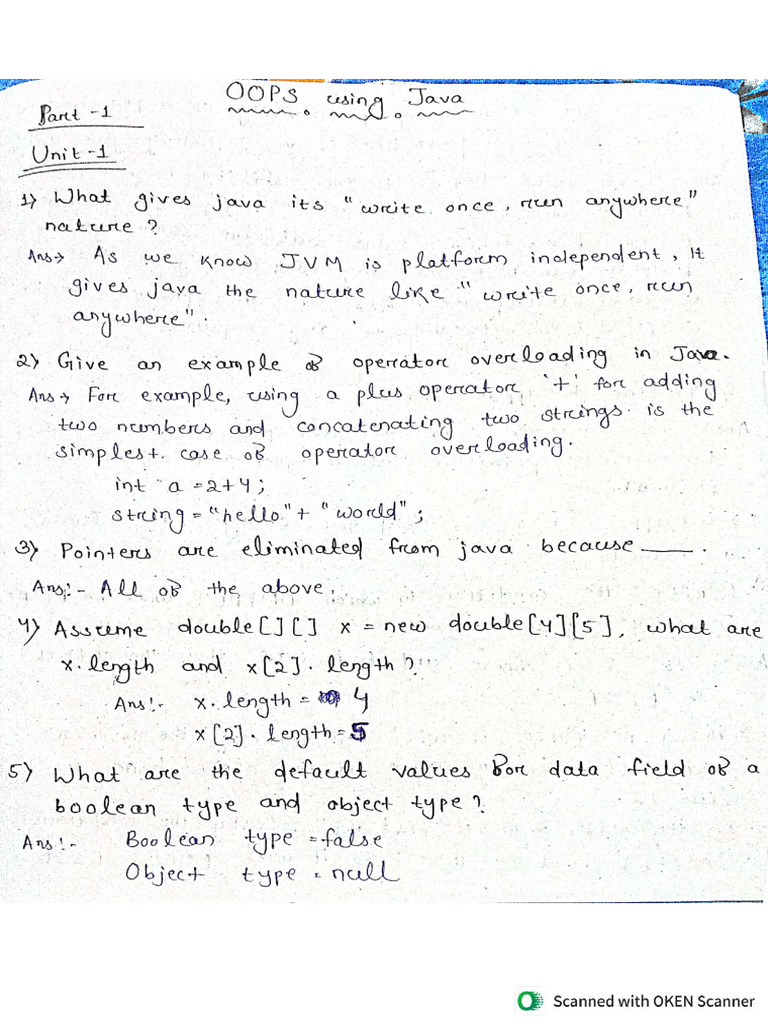 OOPS using Java
Part -1
Unit -1
1) What gives java its "write once, run anywhere"
nature?
Ans→ As we know JVM is platform independent, It
gives java the nature like "write once, run
anywhere".
2) Give an example of operator overloading in Java.
Ans → For example, using a plus operator '+' for adding
two numbers and concatenating two strings is the
simplest case of operator overloading.
int a = 2+4;
string = "hello" + "world";
3) Pointers are eliminated from java because ___.
Ans:- All of the above.
4) Assume double[][] x = new double[4][5], what are
x.length and x[2].length?
Ans:- x.length = 4
x[2].length = 5
5) What are the default values for data field of a
boolean type and object type?
Ans:- Boolean type = false
Object type = null
Scanned with OKEN Scanner